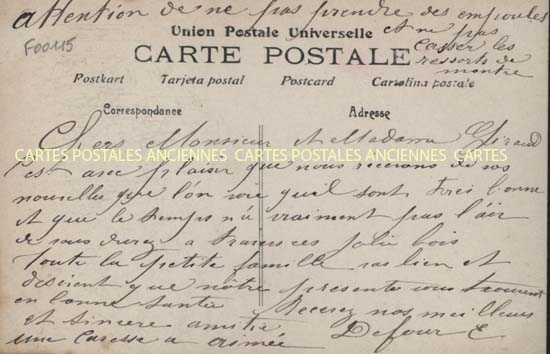 attention de ne pas prendre des ampoules
et ne pas
casser les
ressorts de
montre
F00115
Union Postale Universelle
CARTE POSTALE
Postkart Tarjeta postal Postcard Cartolina postale
Correspondance Adresse
Chers Monsieur et Madame Giraud
CARTES POSTALES ANCIENNES CARTES POSTALES ANCIENNES
C'est avec plaisir que nous recevons de vos
nouvelles que l'on voie qu'il sont très bonne
et que le temps n'a vraiment pas l'air
de vous durez a travers ces jolie bois
Toute la petite famille vas bien et
désirent que nôtre présente vous trouvent
en bonne santée Recevez nos meilleurs
et sincère amitié Defour E
une caresse a